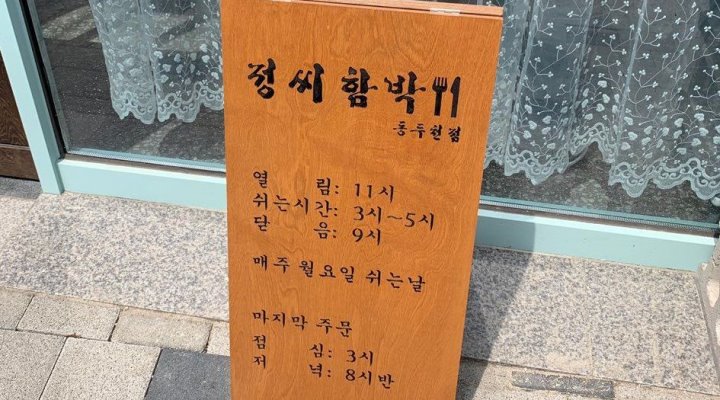 정씨함박
동두천점
열 림: 11시
쉬는시간: 3시~5시
닫 음: 9시
매주 월요일 쉬는날
마지막 주문
점 심: 3시
저 녁: 8시반